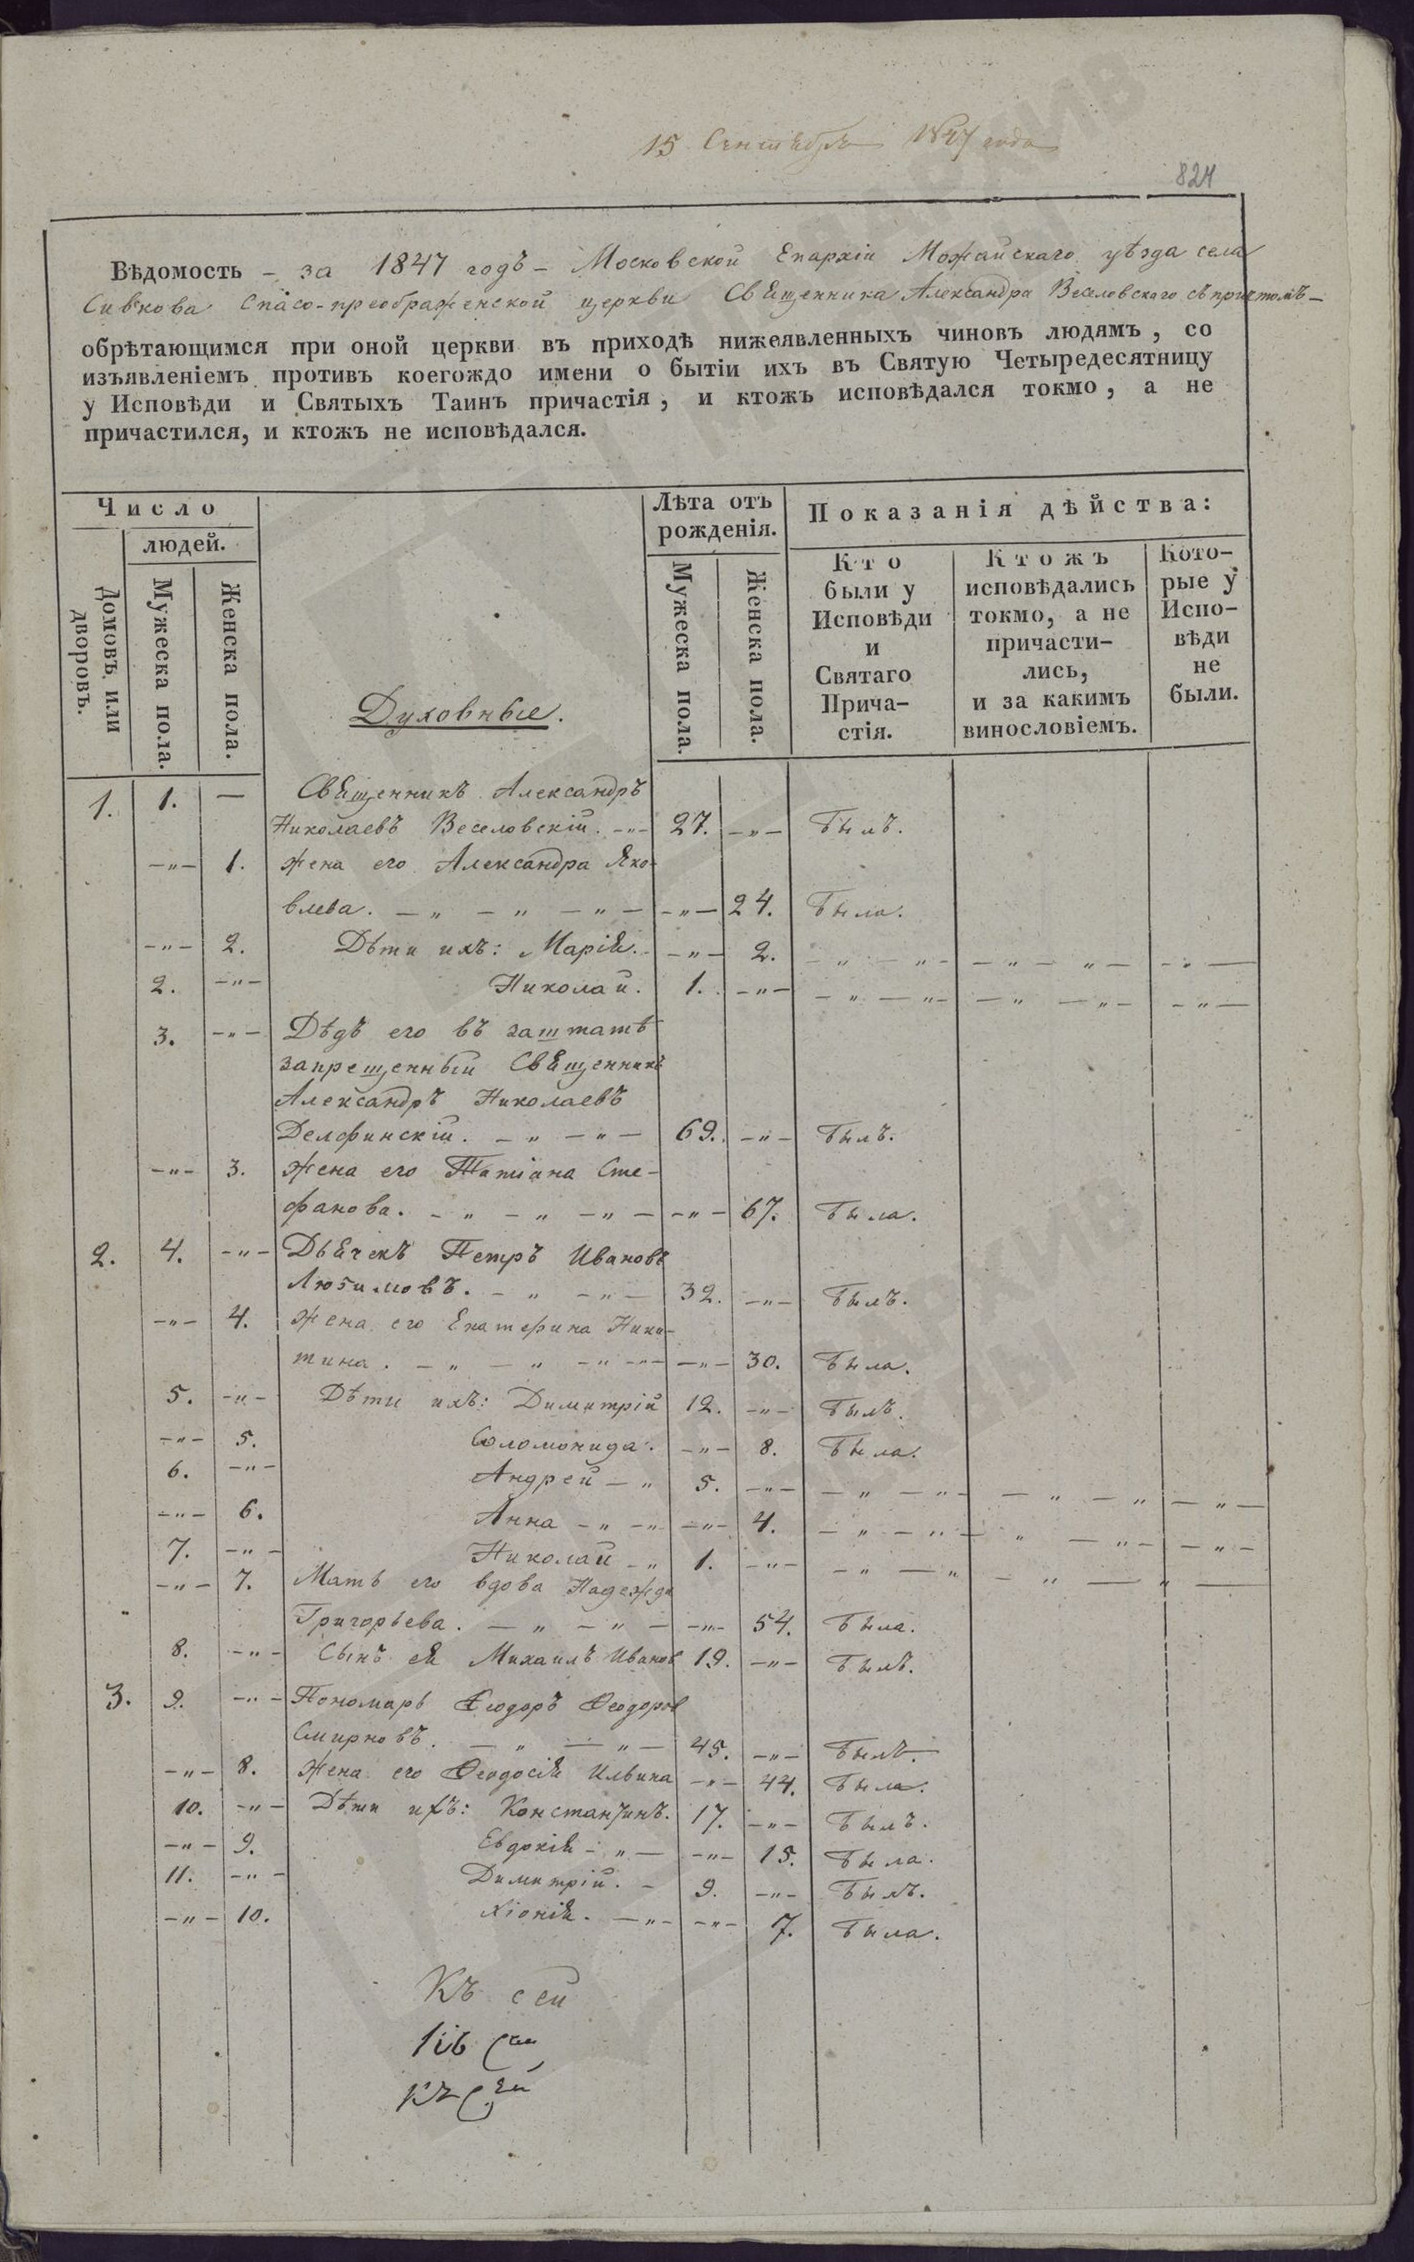 15 Сентября 1847 года
824
Вѣдомость – за 1847 годъ – Московской Епархіи Можайскаго уѣзда села
Сивкова Спасо-преображенской церкви Священника Александра Веселовскаго съ причтомъ –
обрѣтающимся при оной церкви въ приходѣ нижеявленныхъ чиновъ людямъ, со
изъявленіемъ противъ коегождо имени о бытіи ихъ въ Святую Четыредесятницу
у Исповѣди и Святыхъ Таинъ причастія, и ктожъ исповѣдался токмо, а не
причастился, и ктожъ не исповѣдался.
Число
людей.
Домовъ или дворовъ.
Мужеска пола.
Женска пола.
Духовные.
Лѣта отъ
рожденія.
Мужеска пола.
Женска пола.
Показанія дѣйства:
Кто
были у
Исповѣди
и
Святаго
Прича-
стія.
Ктожъ
исповѣдались
токмо, а не
причасти-
лись,
и за какимъ
винословіемъ.
Кото-
рые у
Испо-
вѣди
не
были.
1. 1. — Священникъ Александръ
Николаевъ Веселовскій. -"- 27. -"- Былъ.
-"- 1. Жена его Александра Яко-
влева. — " — " — " — -"- 24. Была.
-"- 2. Дѣти ихъ: Марія. -"- 2. — " — " — — " — " — — " —
2. -"- Николай. 1. -"- — " — " — — " — " — — " —
3. -"- Дѣдъ его въ заштатѣ
запрещенный Священникъ
Александръ Николаевъ
Делфинскій. — " — " — 69. -"- Былъ.
-"- 3. Жена его Татіана Сте-
фанова. — " — " — " — -"- 67. Была.
2. 4. -"- Дьячекъ Петръ Ивановъ
Любимовъ. — " — " — 32. -"- Былъ.
-"- 4. Жена его Екатерина Ники-
тина. — " — " — " — -"- 30. Была.
5. -"- Дѣти ихъ: Димитрій 12. -"- Былъ.
-"- 5. Соломонида. -"- 8. Была.
6. -"- Андрей — " 5. -"- — " — " — — " — " — " —
-"- 6. Анна — " — " -"- 4. — " — " — " — " — — " —
7. -"- Николай — " 1. -"- — " — " — " — " —
-"- 7. Мать его вдова Надежда
Григорьева. — " — " — -"- 54. Была.
8. -"- Сынъ ея Михаилъ Иванов 19. -"- Былъ.
3. 9. -"- Пономарь Ѳеодоръ Ѳеодоров
Смирновъ. — " — " — 45. -"- Былъ.
-"- 8. Жена его Ѳеодосія Ильина -"- 44. Была.
10. -"- Дѣти ихъ: Константинъ. 17. -"- Былъ.
-"- 9. Евдокія — " — -"- 15. Была.
11. -"- Димитрій. — 9. -"- Былъ.
-"- 10. Хіонія. — " — -"- 7. Была.
Къ сей
Къ сей